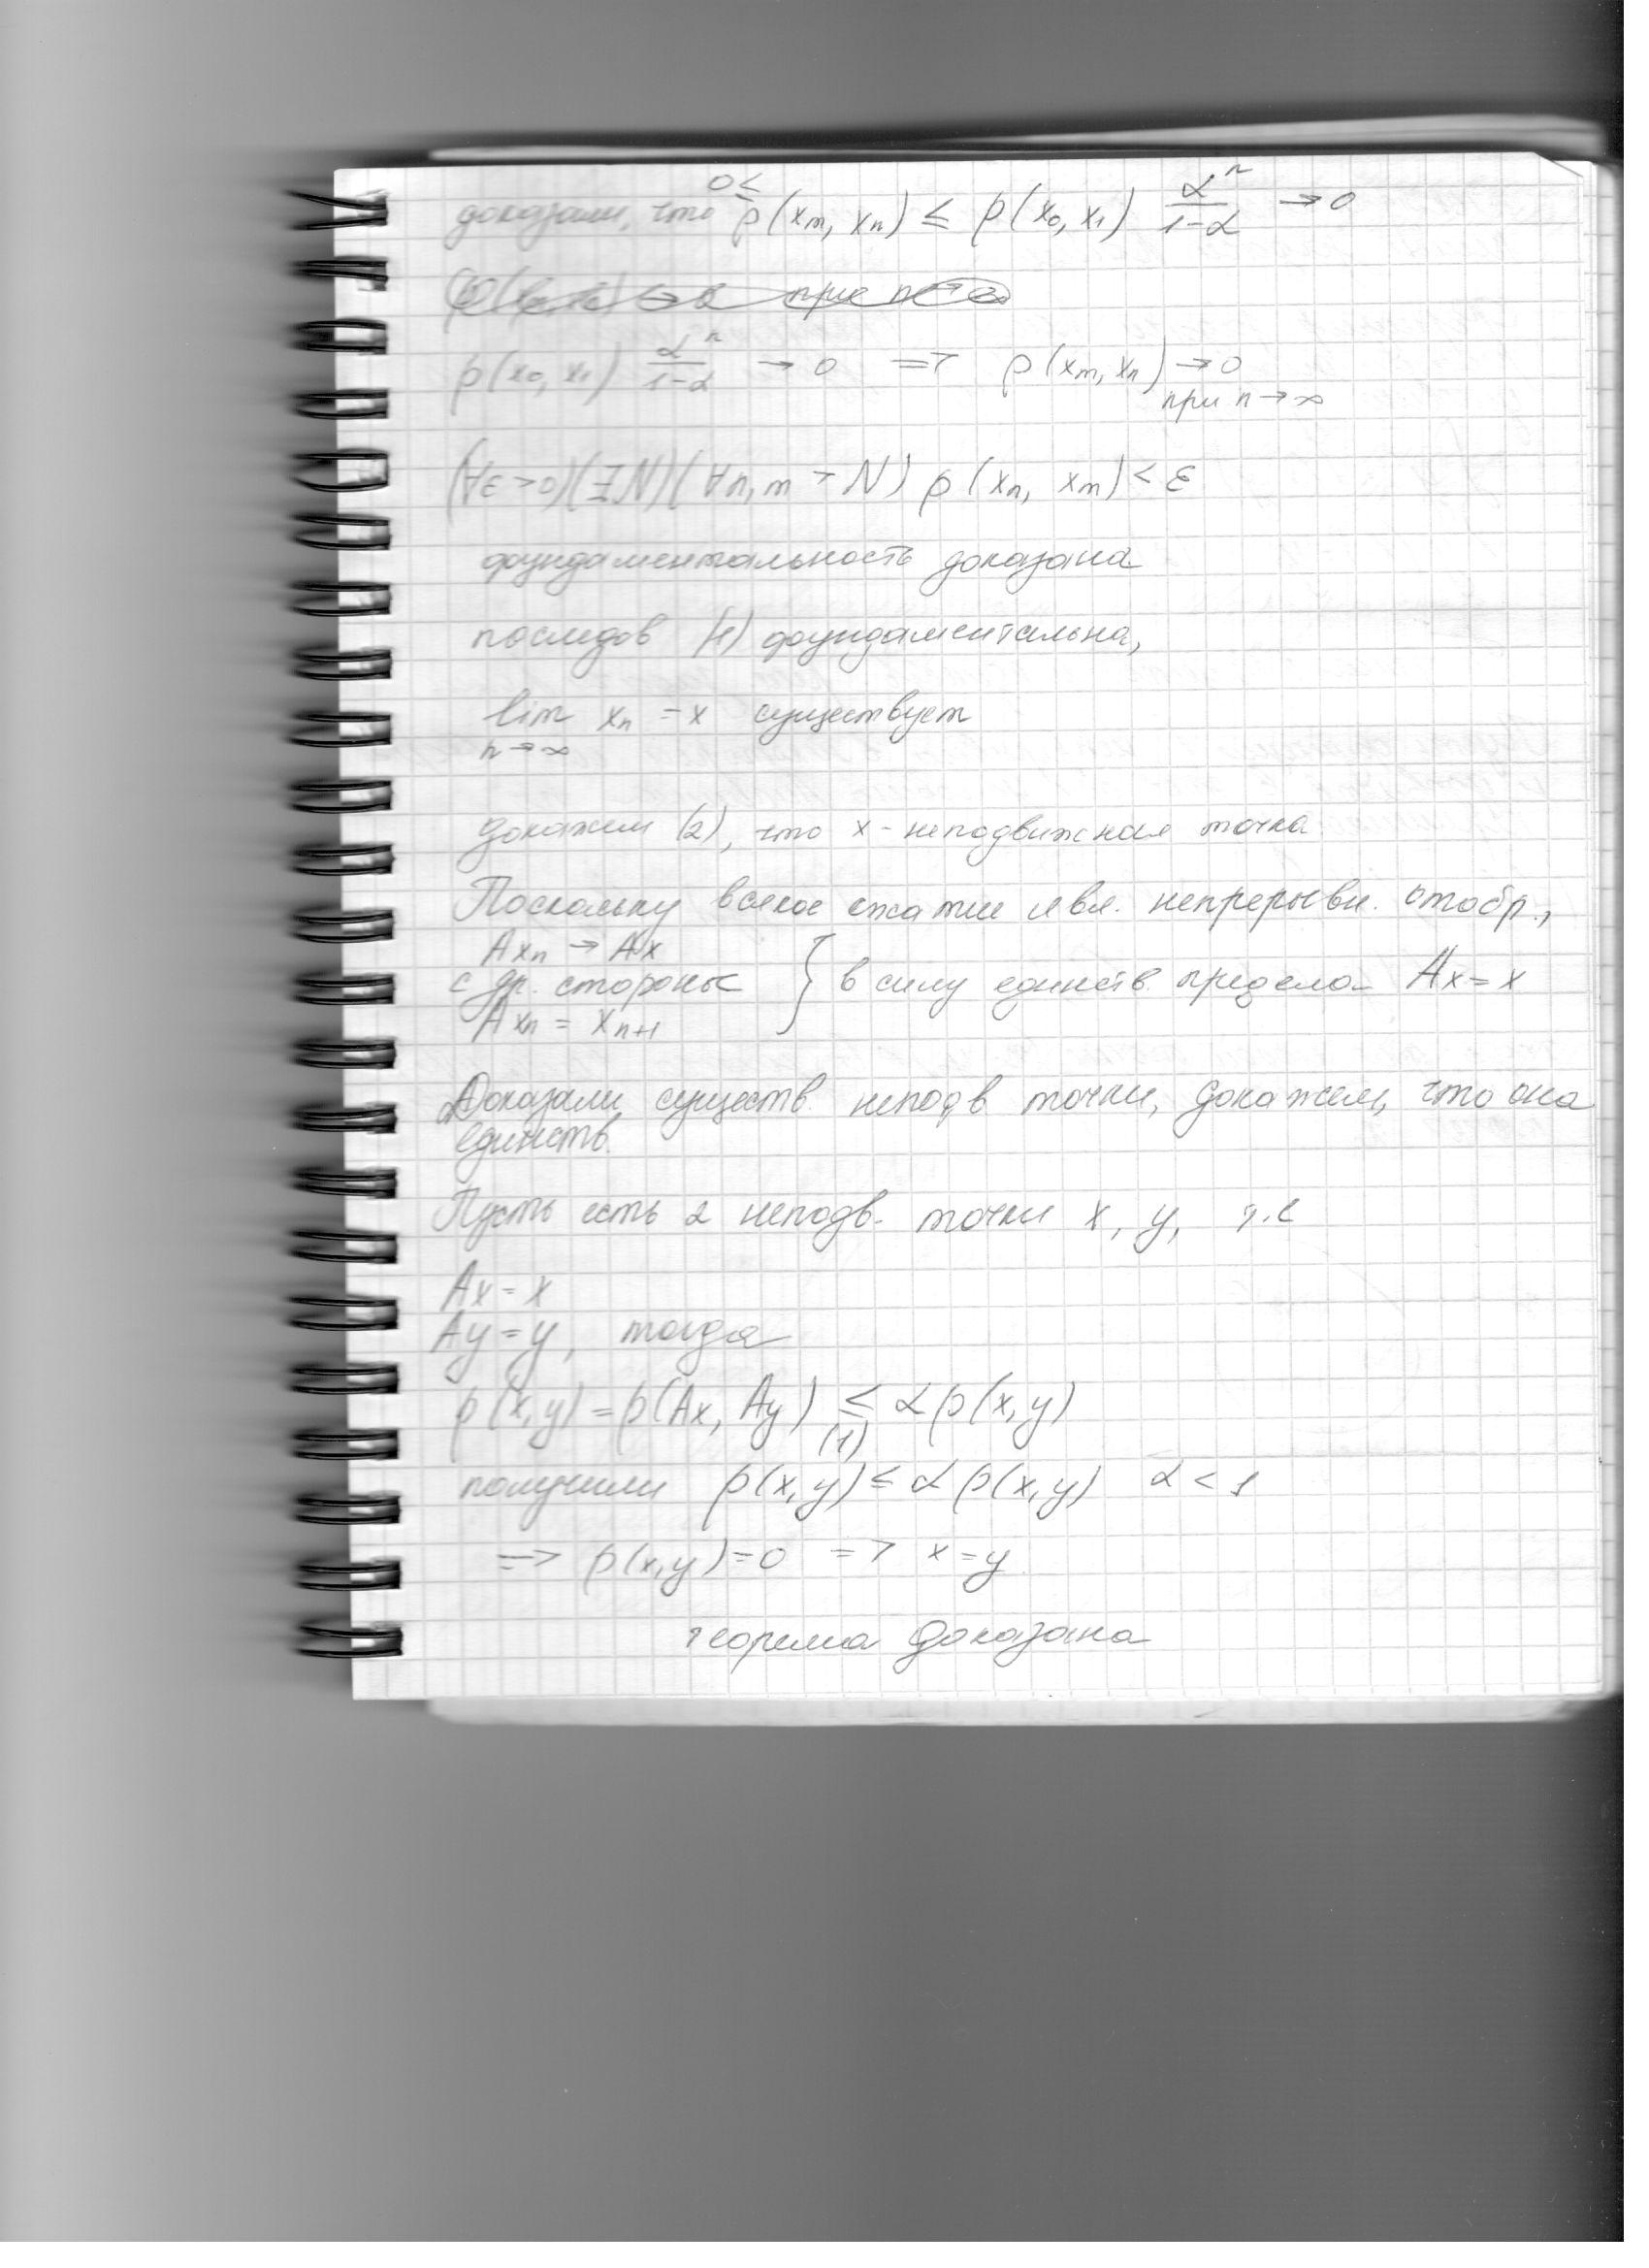 0≤
доказали, что ρ(xₘ, xₙ) ≤ ρ(x₀, x₁) αⁿ/(1-α) → 0
при n→∞
ρ(x₀, x₁) αⁿ/(1-α) → 0 => ρ(xₘ, xₙ) → 0
при n→∞
(∀ε>0)(∃N)(∀n,m > N) ρ(xₙ, xₘ) < ε
фундаментальность доказана
последов (1) фундаментальна,
lim xₙ = x существует
n→∞
докажем (2), что x - неподвижная точка
Поскольку всякое сжатие явл. непрерывн. отобр.,
Axₙ → Ax
с др. стороны } в силу единств. предела Ax = x
Axₙ = xₙ₊₁
Доказали существ. неподв точки, докажем, что она
единств.
Пусть есть 2 неподв. точки x, y, т.е
Ax = x
Ay = y, тогда
ρ(x,y) = ρ(Ax, Ay) ≤ αρ(x,y)
(1)
получили ρ(x,y) ≤ αρ(x,y) α < 1
=> ρ(x,y) = 0 => x = y
теорема доказана